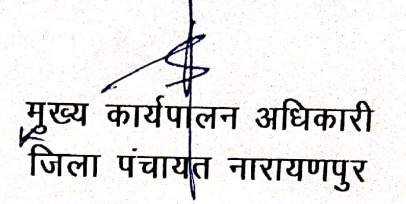 मुख्य कार्यपालन अधिकारी
जिला पंचायत नारायणपुर